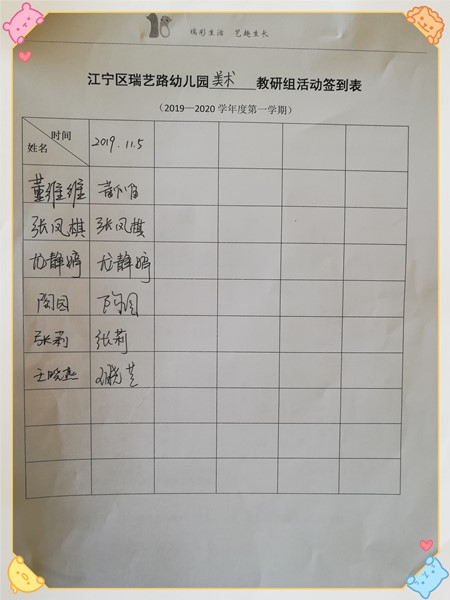 瑞彩生活 艺趣生长
江宁区瑞艺路幼儿园 美术 教研组活动签到表
（2019—2020 学年度第一学期）
时间
姓名
2019.11.5
董维维
张凤棋 张凤棋
尤静婷 尤静婷
陶园 陶园
张莉 张莉
王晓燕